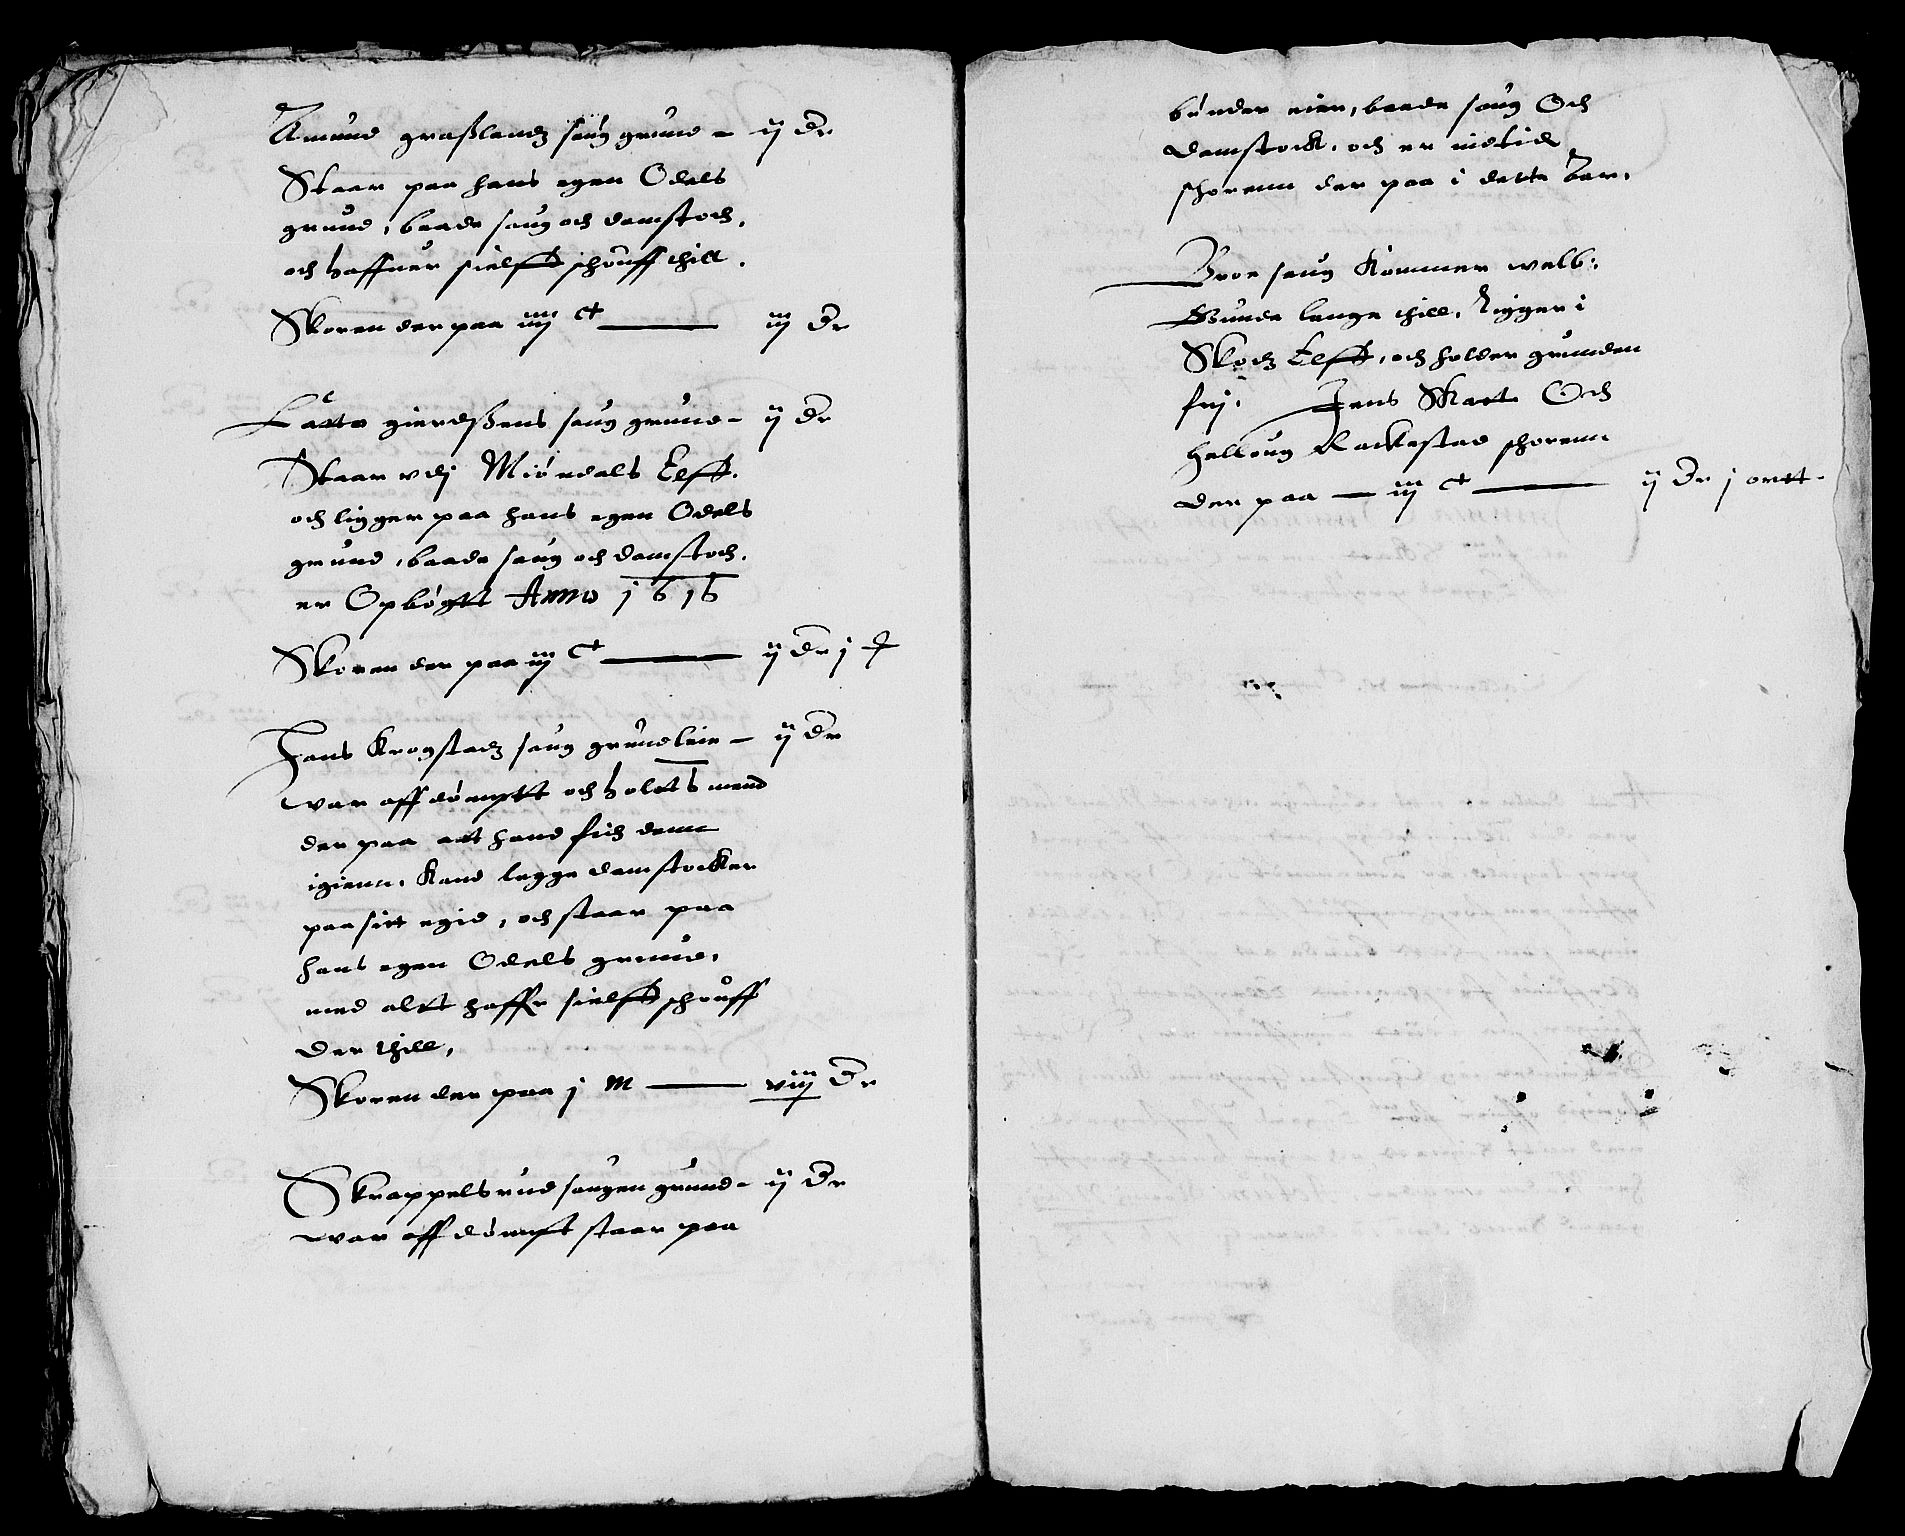 Amund graßlandz saug grund – ij dr
Staar paa hans egen Odels
grund, baade saug och damstoch,
och haffuer sielff schouff thill.
Skoren der paa iiij C —— iij dr
Latto gierdßens saug grund – ij dr
Staar vdj Miøndals Elff.
och ligger paa hans egen Odels
grund, baade saug och damstoch.
er Opbøgtt Anno 1616
Skoren der paa iij C —— ij dr j
Hans Krogstadz saug grundleie – ij dr
war aff dømptt och holtts mand
der paa att hand fich denn
igienn, Kand legge damstocker
paa sitt egid, och staar paa
hans egen Odels grund,
med altt haffr sielff schouff
der thill,
Skoren der paa j M —— viij dr
Skrappelsrud saugen grund – ij dr
war aff dømpt staar paa
bønder eier, baade saug Och
damstock, och er inttid
schorenn der paa i dette aar.
Broe saug Kommer welb:
Gunde lange thill, ligger i
Skodz Elff, och holder grunden
frij. Jens Mart Och
Halluug Rackestad schorenn
der paa — iij C —— ij dr j ortt